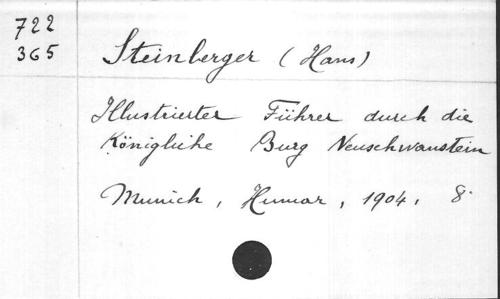 722
365
Steinberger (Hans)
Illustrierter Führer durch die
Königliche Burg Neuschwanstein
Munich, Humar, 1904, 8°